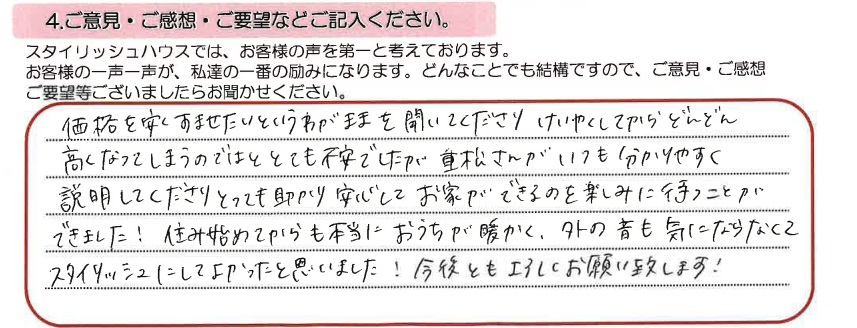 4.ご意見・ご感想・ご要望などご記入ください。
スタイリッシュハウスでは、お客様の声を第一と考えております。
お客様の一声一声が、私達の一番の励みになります。どんなことでも結構ですので、ご意見・ご感想
ご要望等ございましたらお聞かせください。
価格を安くすませたいというわがままを聞いてくださり けいやくしてからどんどん
高くなってしまうのではととても不安でしたが 重松さんがいつも分かりやすく
説明してくださりとっても助かり 安心して お家ができるのを楽しみに待つことが
できました! 住み始めてからも本当に おうちが暖かく、外の音も気にならなくて
スタイリッシュにしてよかったと思いました! 今後ともよろしくお願い致します!